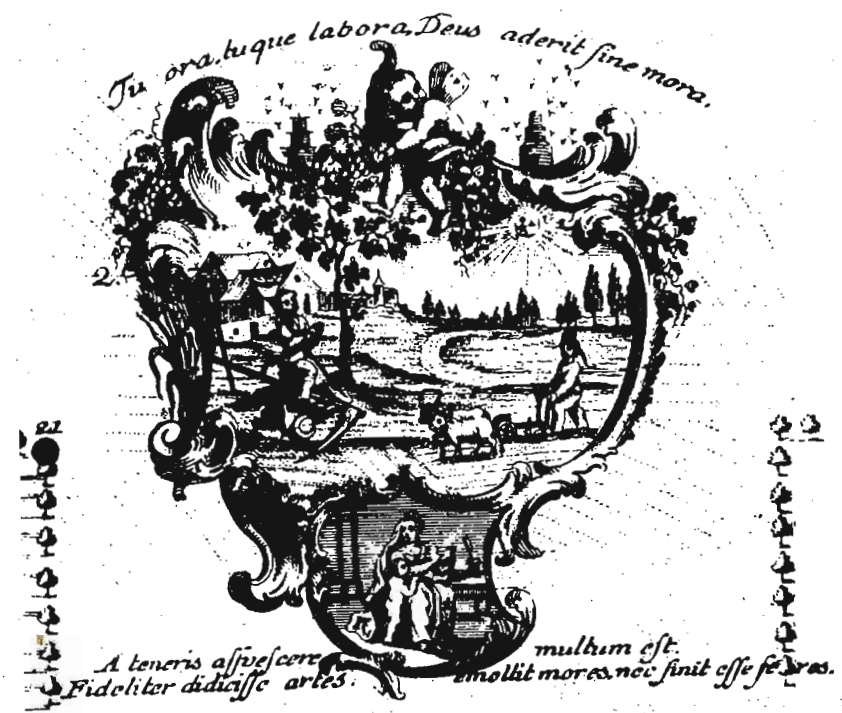 Tu ora, tuque labora, Deus aderit ſine mora.
2.
21
A teneris aſſueſcere multum eſt.
Fideliter didiciſſe artes. emollit mores, nec ſinit eſſe